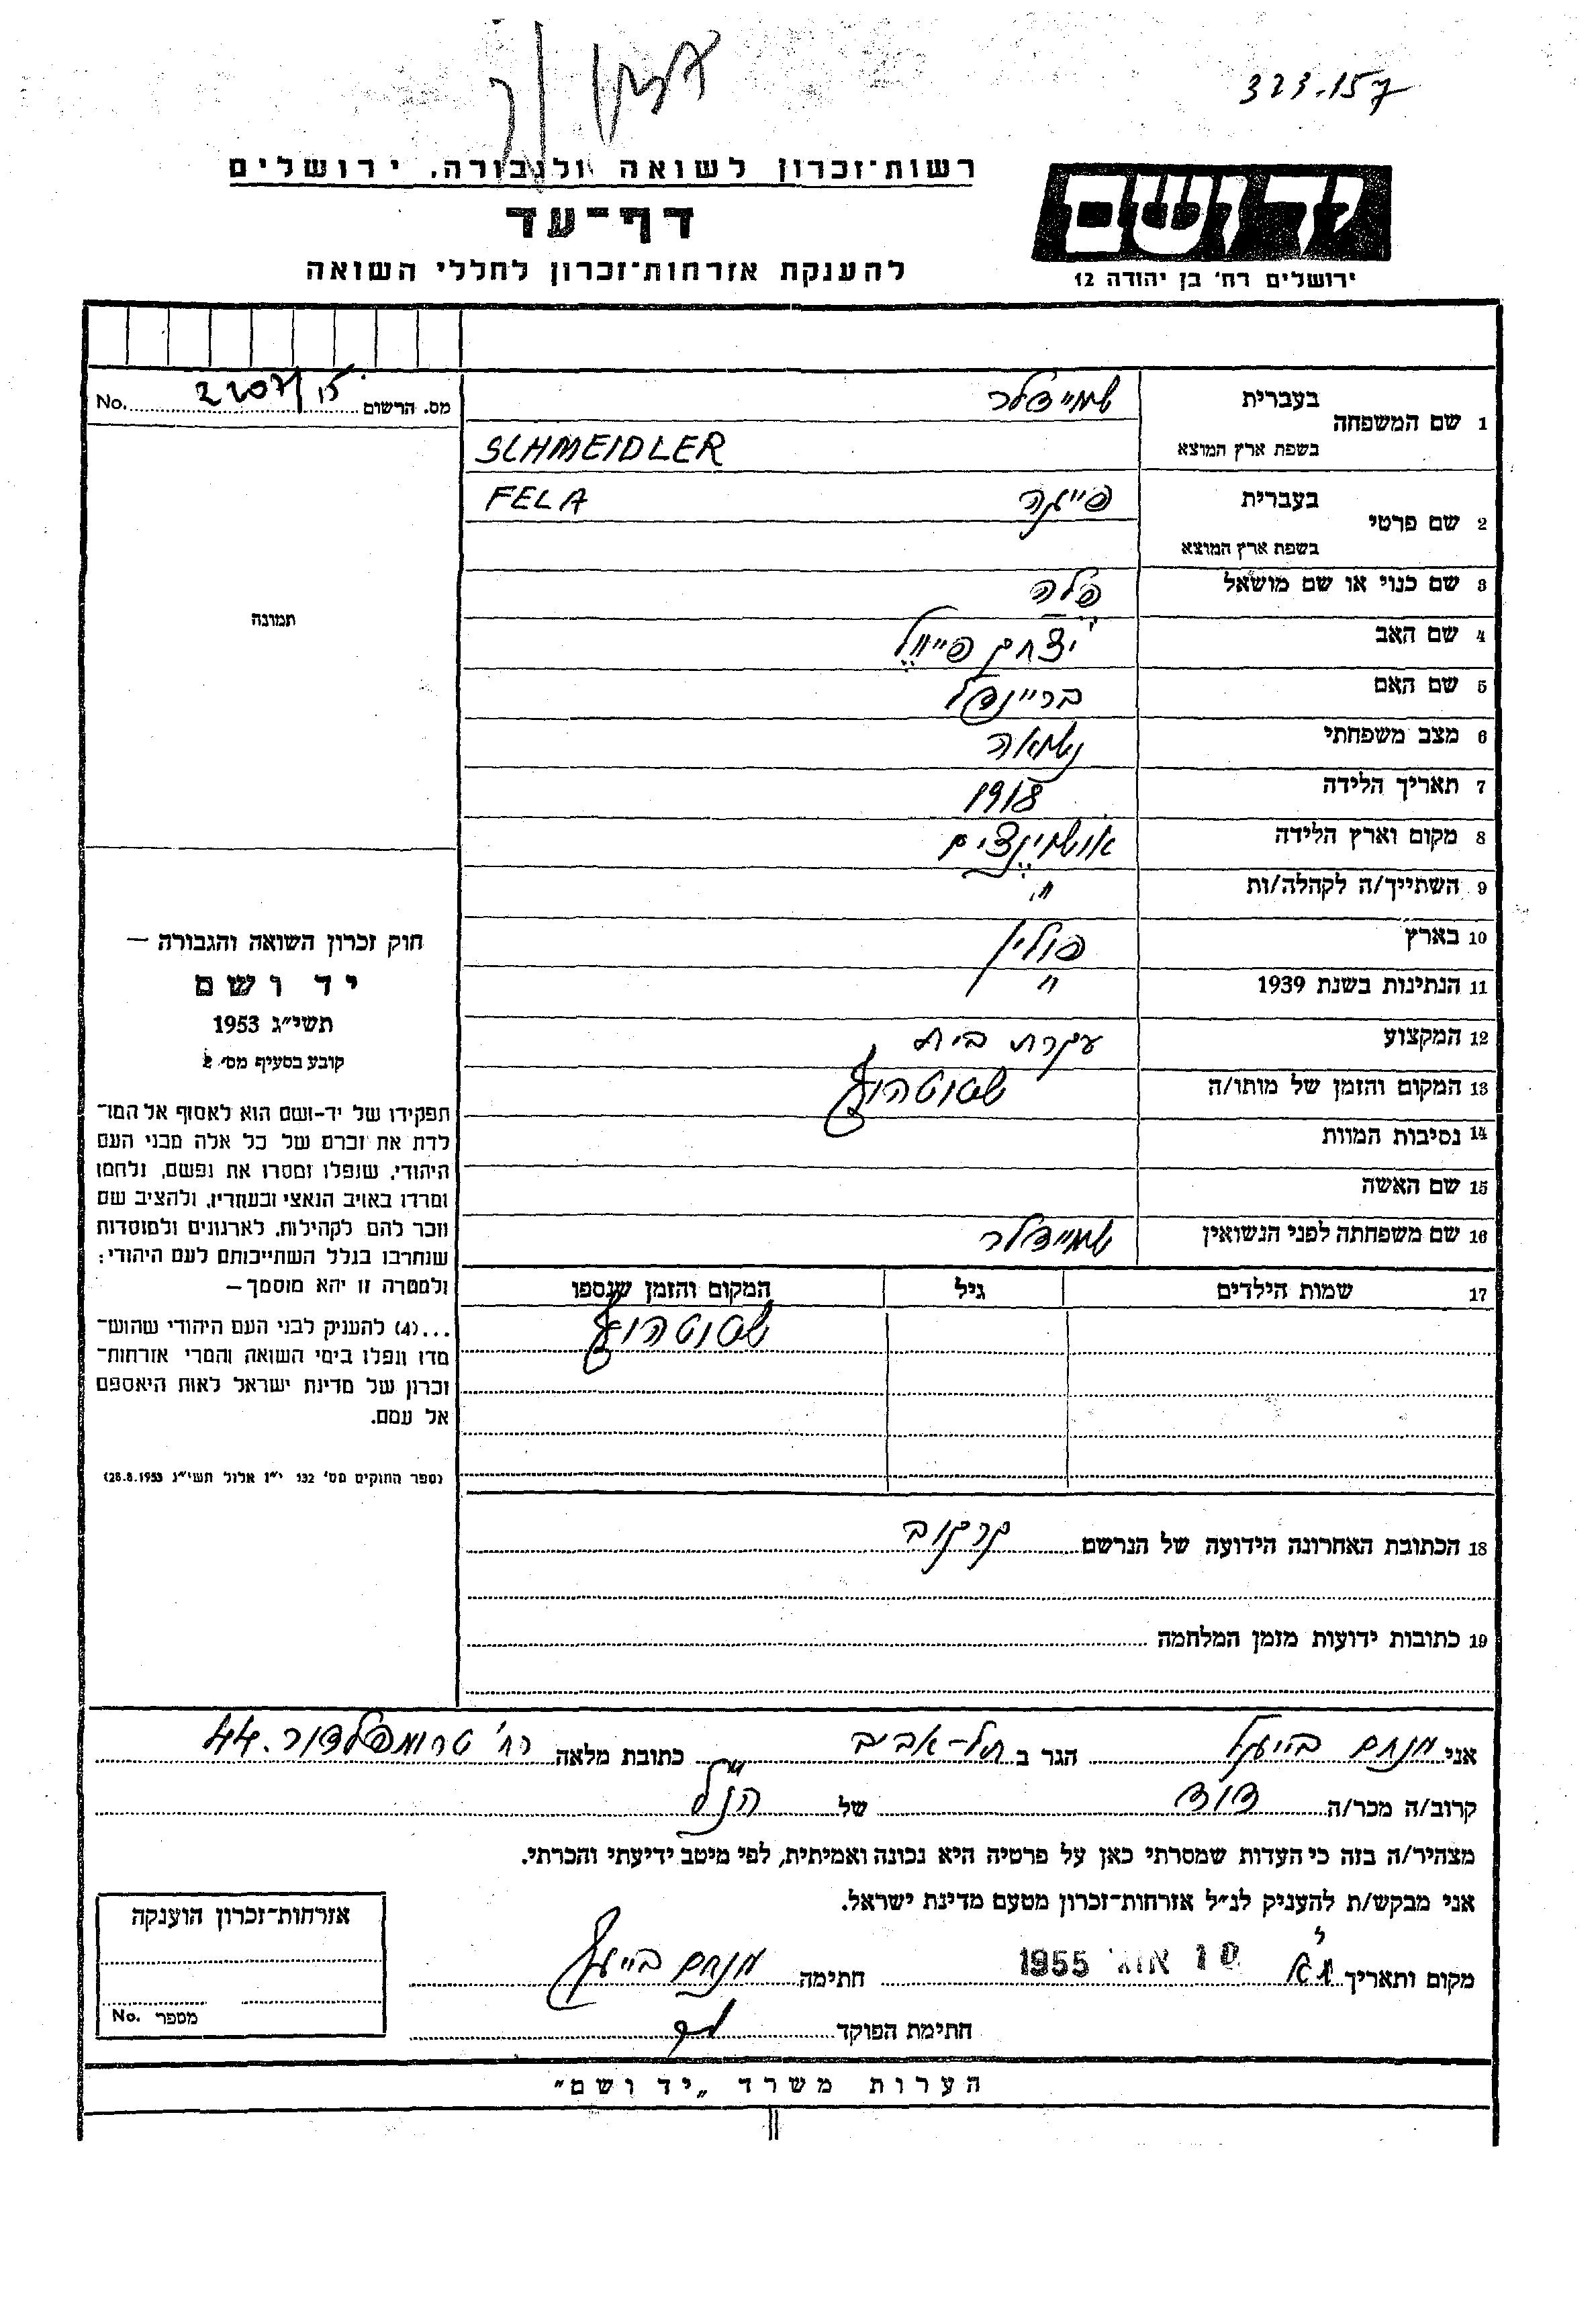 323.157
רשות־זכרון לשואה ולגבורה, ירושלים
דף־עד
להענקת אזרחות־זכרון לחללי השואה
יד ושם
ירושלים רח' בן יהודה 12
מס. הרשום 2207/15 No.
1 שם המשפחה בעברית שמיידלר
בשפת ארץ המוצא SCHMEIDLER
2 שם פרטי בעברית פייגה FELA
בשפת ארץ המוצא
3 שם כנוי או שם מושאל פלה
4 שם האב יצחק פייוול
5 שם האם בריינדל
6 מצב משפחתי נשואה
7 תאריך הלידה 1918
8 מקום וארץ הלידה אושוינצים
9 השתייך/ה לקהלה/ות "
10 בארץ פולין
11 הנתינות בשנת 1939 "
12 המקצוע עקרת בית
13 המקום והזמן של מותו/ה שטוטהוף
14 נסיבות המוות
15 שם האשה
16 שם משפחתה לפני הנשואין שמיידלר
17 שמות הילדים גיל המקום והזמן שנספו
שטוטהוף
18 הכתובת האחרונה הידועה של הנרשם קרקוב
19 כתובות ידועות מזמן המלחמה
תמונה
חוק זכרון השואה והגבורה —
יד ושם
תשי״ג 1953
קובע בסעיף מס׳ 2
תפקידו של יד-ושם הוא לאסוף אל המו־
לדת את זכרם של כל אלה מבני העם
היהודי, שנפלו ומסרו את נפשם, נלחמו
ומרדו באויב הנאצי ובעוזריו, ולהציב שם
וזכר להם לקהילות, לארגונים ולמוסדות
שנחרבו בגלל השתייכותם לעם היהודי;
ולמטרה זו יהא מוסמך —
...(4) להעניק לבני העם היהודי שהוש־
מדו ונפלו בימי השואה והמרי אזרחות־
זכרון של מדינת ישראל לאות היאספם
אל עמם.
(ספר החוקים מס׳ 132 י״ז אלול תשי״ג 28.8.1953)
אני מנחם הגר ב תל-אביב כתובת מלאה רח' טרומפלדור 44
קרוב/ה מכר/ה דוד של הנ״ל
מצהיר/ה בזה כי העדות שמסרתי כאן על פרטיה היא נכונה ואמיתית, לפי מיטב ידיעתי והכרתי.
אני מבקש/ת להעניק לנ״ל אזרחות־זכרון מטעם מדינת ישראל.
מקום ותאריך ת״א 10 אוג׳ 1955 חתימה מנחם
חתימת הפוקד
אזרחות־זכרון הוענקה
מספר No.
הערות משרד „יד ושם״